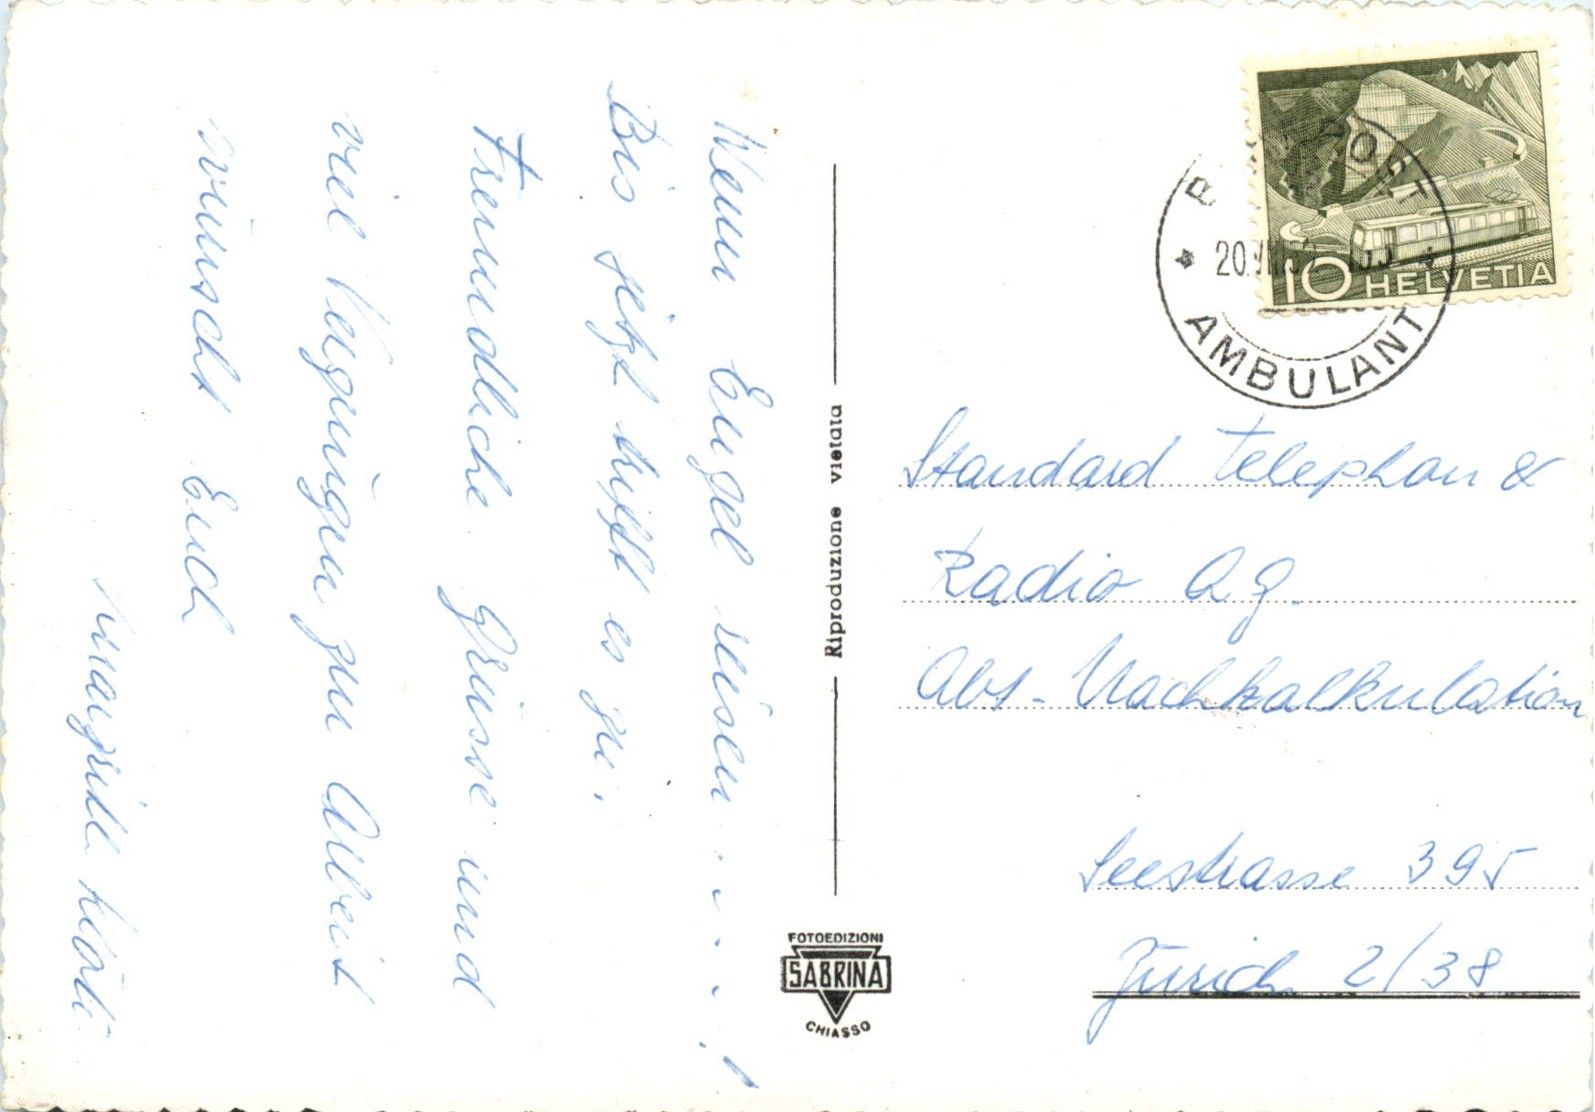 Wenn Engel reisen . . . . . !
Bis jetzt trifft es zu.
Freundliche Grüsse und
viel Vergnügen zur Arbeit
wünscht Euch
Margrith
Riproduzione vietata
FOTOEDIZIONI
SABRINA
CHIASSO
HELVETIA
10
AMBULANT
20.VIII.5
Standard Telephon &
Radio AG.
Abt. Nachkalkulation
Seestrasse 395
Zürich 2/38